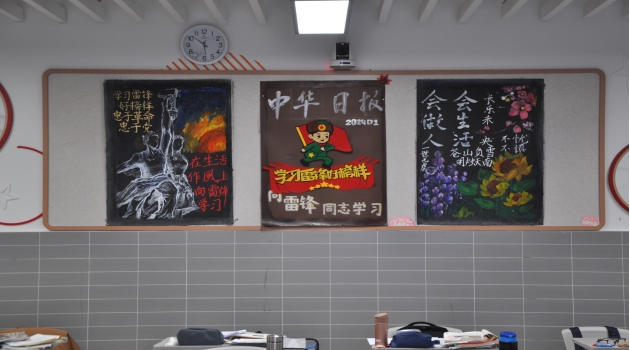 学习雷锋
好榜样
忠于革命
忠于党
在生活
作风上
向雷锋
学习
中华日报
202401
学习雷锋好榜样
向雷锋同志学习
会做人
会生活
长乐未央